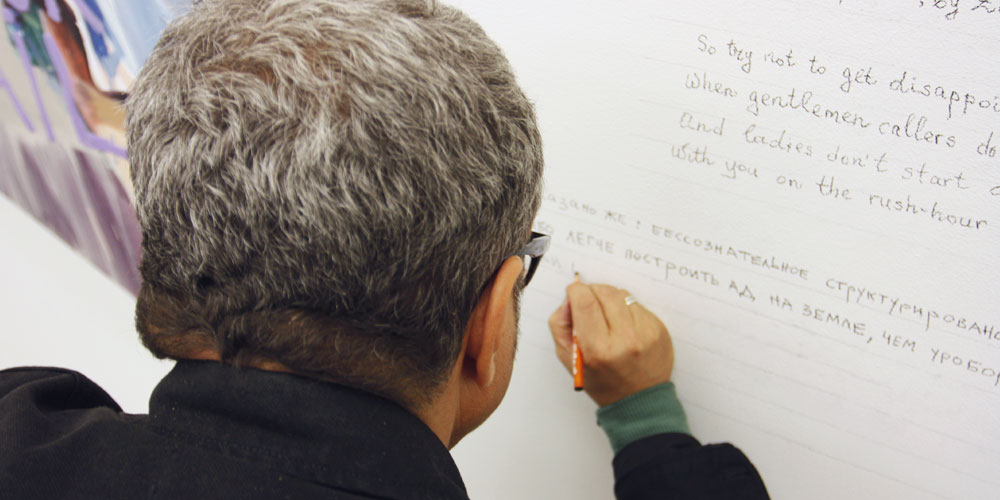 , by
So try not to get disappoi
When gentlemen callers do
And ladies don't start
With you on the rush-hour
азано же: бессознательное структурировано
легче построить ад на земле, чем уробор